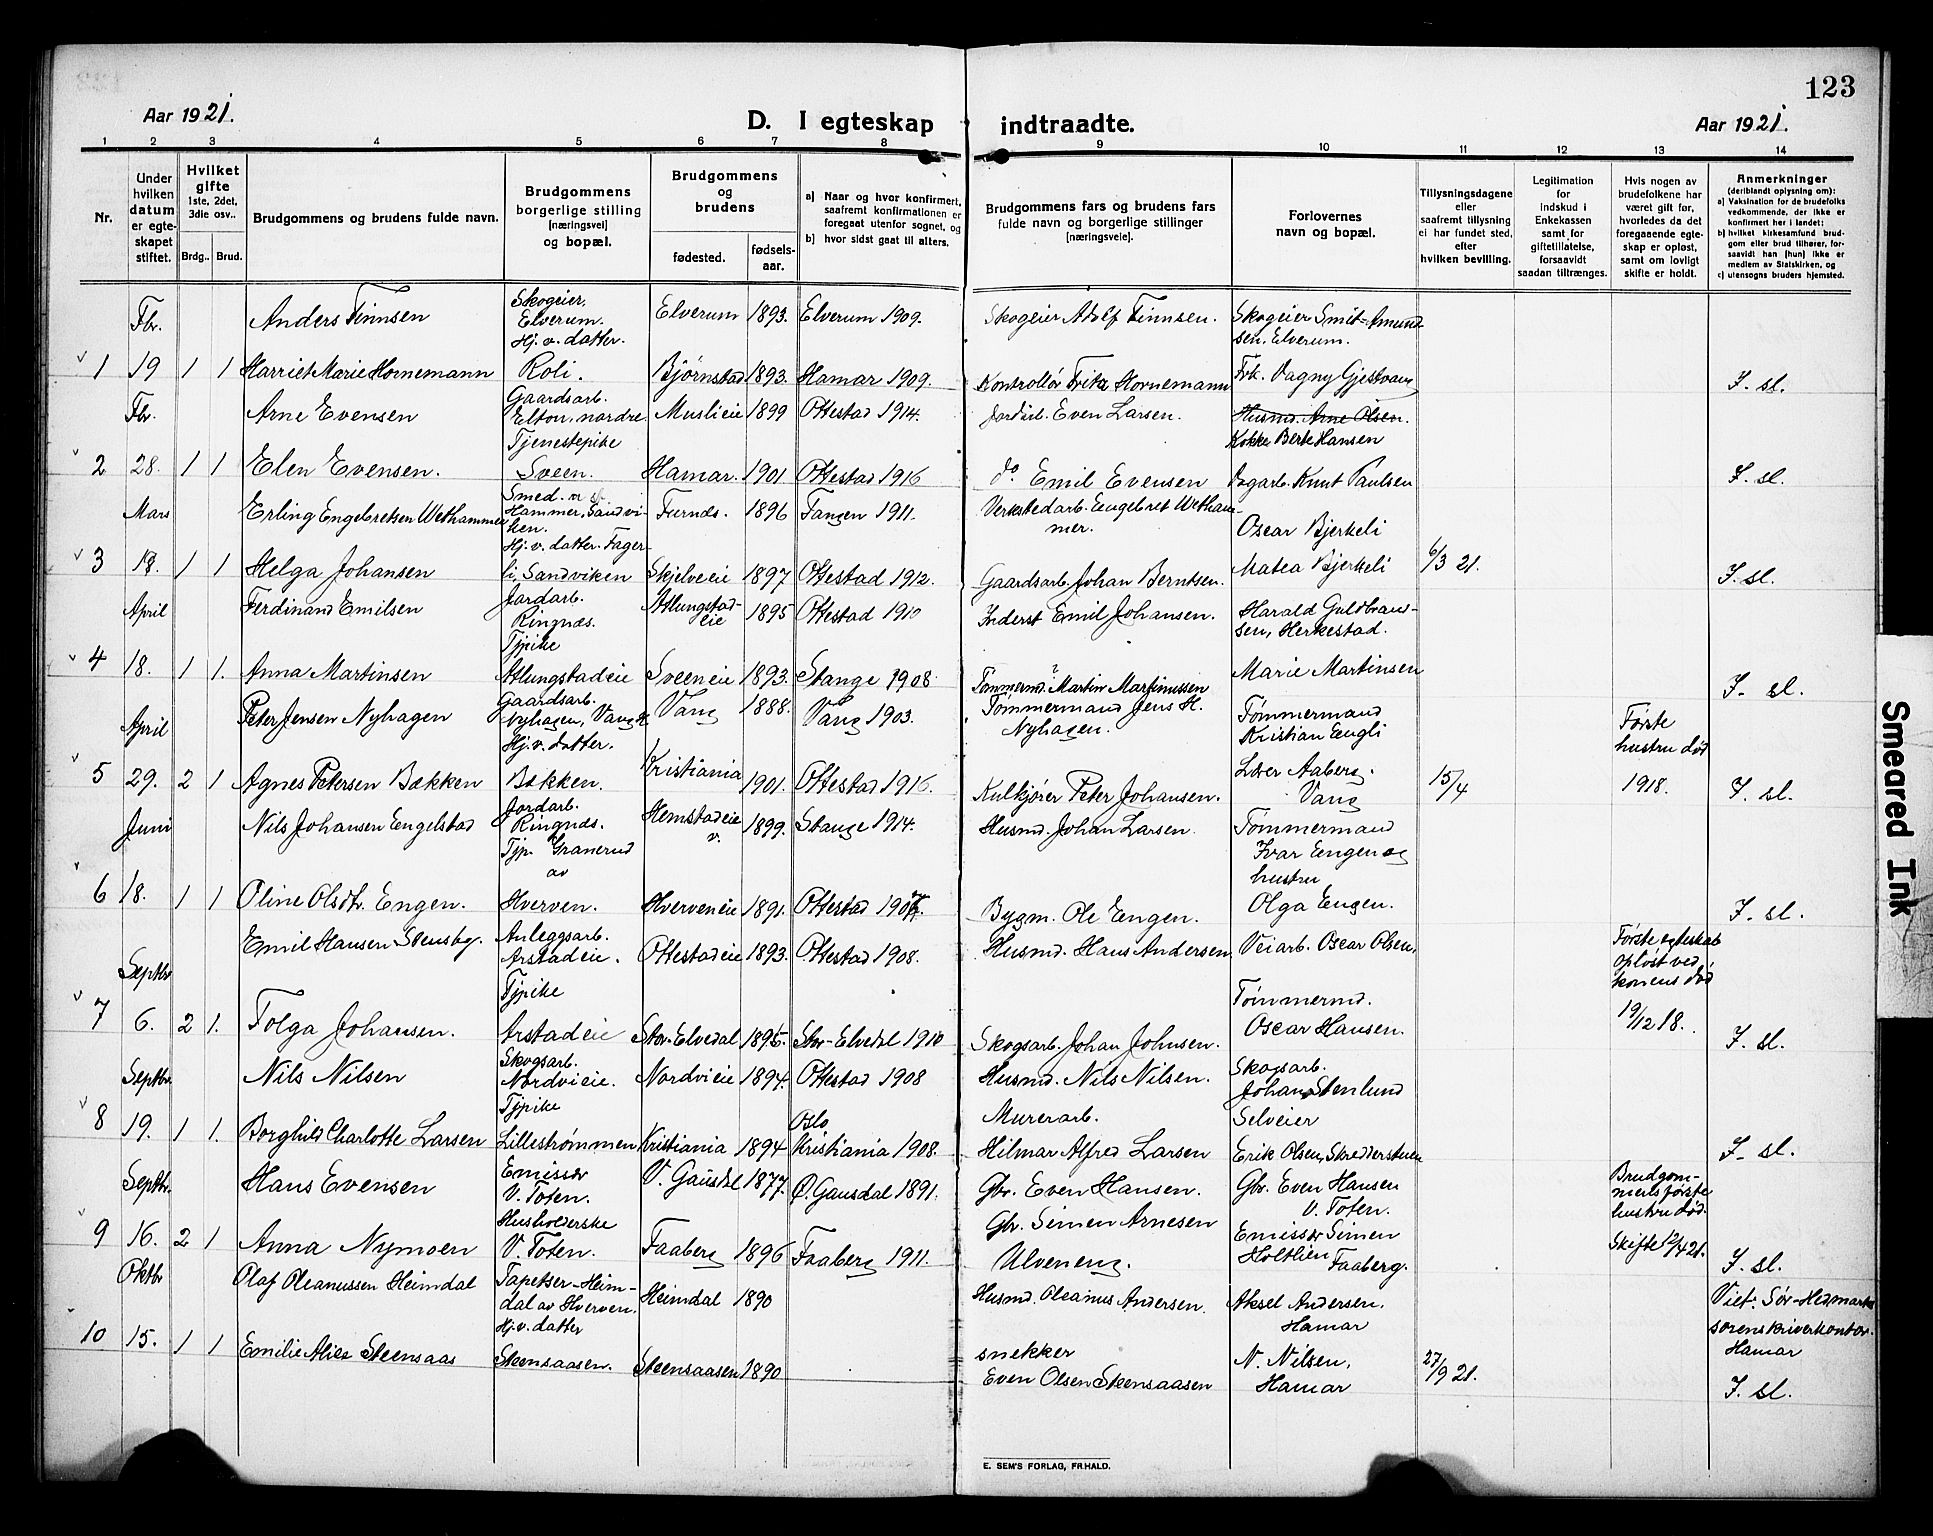 123
Aar 1921.
D. I egteskap indtraadte.
Aar 1921.
1 2 3 4 5 6 7 8 9 10 11 12 13 14
Nr.
Under hvilken datum er egte-skapet stiftet.
Hvilket gifte 1ste, 2det, 3die osv..
Brdg.. Brud.
Brudgommens og brudens fulde navn.
Brudgommens borgerlige stilling (næringsvei) og bopæl.
Brudgommens og brudens
fødested.
fødsels-aar.
a) Naar og hvor konfirmert, saafremt konfirmationen er foregaat utenfor sognet, og
b) hvor sidst gaat til alters.
Brudgommens fars og brudens fars fulde navn og borgerlige stillinger (næringsveie).
Forlovernes navn og bopæl.
Tillysningsdagene eller saafremt tillysning ei har fundet sted, efter hvilken bevilling.
Legitimation for indskud i Enkekassen samt for giftetillatelse, forsaavidt saadan tiltrænges.
Hvis nogen av brudefolkene har været gift før, hvorledes da det foregaaende egte-skap er opløst, samt om lovligt skifte er holdt.
Anmerkninger (deriblandt oplysning om): a) Vaksination for de brudefolks vedkommende, der ikke er konfirmert her i landet; b) hvilket kirkesamfund brud-gom eller brud tilhører, for-saavidt han (hun) ikke er medlem av Statskirken, og c) utensogns bruders hjemsted.
Fbr. Anders Finnsen Skogeier, Elverum. Elverum 1893. Elverum 1909. Skogeier Adolf Finnsen. Skogeier Smit-Amund-sen, Elverum.
1 19 1 1 Harriet Marie Hornemann Hj. v. datter. Roli. Bjørnstad 1893. Hamar 1909. Kontrollør Fritz Hornemann Frk. Dagny Gjestvang I. sl.
Fbr. Arne Evensen Gaardsarb. Elton, nordre. Muslieie 1899 Ottestad 1914. Jordarb. Even Larsen. Husmd. Arne Olsen. Kokke Berte Hansen
2 28. 1 1 Elen Evensen. Tjenestepike Sveen. Hamar. 1901 Ottestad 1916 do Emil Evensen Dagarb. Knut Paulsen I. sl.
Mars Erling Engebretsen Wethammer Smed. Hammer, Sandvi-ken. Furnds. 1896 Tangen 1911. Verkstedarb. Engebret Wetham-mer. Oscar Bjerkeli
3 18. 1 1 Helga Johansen Hj. v. datter. Fager-li, Sandviken Skjelveie 1897 Ottestad 1912. Gaardsarb. Johan Berntsen. Matea Bjerkeli 6/3 21. I. sl.
April Ferdinand Emilsen Jordarb. Ringnæs. Atlungstad-eie 1895 Ottestad 1910 Inderst Emil Johansen. Harald Guldbran-sen, Herkestad.
4 18. 1 1. Anna Martinsen Tjpike Atlungstadeie Sveeneie 1893. Stange 1908 Tømmermd. ? Martin Martinussen Marie Martinsen I. sl.
April Peter Jensen Nyhagen Gaardsarb. Nyhagen, Vang Vang 1888. Vang 1903. Tømmermand Jens H. Nyhagen. Tømmermand Kristian Engli Første hustru død
5 29. 2 1 Agnes Petersen Bakken Hj. v. datter. Bakken. Kristiania 1901. Ottestad 1916. Kulkjører Peter Johansen. Aaberg. Vang 15/4 1918. I. sl.
Juni Nils Johansen Engelstad Jordarb. Ringnæs. Hemstadeie v. 1899. Stange 1914. Husmd. Johan Larsen. Tømmermand Ivar Engen og hustru
6 18. 1 1 Oline Olsdtr. Engen. Tjp. Granerud av Hverven. Hverveneie 1891. Ottestad Bygm. Ole Engen. Olga Engen. I. sl.
Septbr Emil Hansen Stensbg. Anleggsarb. Arstadeie. Ottestadeie 1893. Ottestad 1908. Husmd. Hans Andersen Veiarb. Oscar Olsen. Første egteskab opløst ved konens død
7 6. 2 1. Tolga Johansen. Tjpike Arstadeie Stor-Elvedal 1895. Stor-Elvedal 1910 Skogsarb. Johan Johnsen. Tømmermd. Oscar Hansen. 19/12 18. I. sl.
Septbr. Nils Nilsen Skogsarb. Nordvieie. Nordvieie 1894. Ottestad 1908 Husmd. Nils Nilsen. Skogsarb. Johan Stenlund
8 19. 1 1. Borghild Charlotte Larsen Tjpike Lillestrømmen Kristiania 1894 Oslo Kristiania 1908. Murerarb. Hilmar Alfred Larsen Selveier Erik Olsen, Skredderstuen I. sl.
Septbr. Hans Evensen Emissær V. Toten. V. Gausdal 1877. Ø. Gausdal 1891. Gbr. Even Hansen. Gbr. Even Hansen V. Toten. Brudgom-mens første hustru død.
9 16. 2 1 Anna Nymoen Husholderske V. Toten. Faaberg 1896 Faaberg 1911. Gbr. Simen Arnesen Ulveneng. Emissær Simen Holtlien Faaberg. Skifte 12/4 21. I. sl.
Oktbr Olaf Oleanussen Heimdal Tapetser-Heim-dal av Hverven. Heimdal 1890 Husmd. Oleanus Andersen. Aksel Andersen. Hamar Viet: Sør-Hedmark sorenskriverkontor. Hamar
10 15. 1 1 Emilie Alise Steensaas Hj. v. datter Steensaasen. Steensaasen 1890 snekker Even Olsen Steensaasen N. Nilsen. Hamar 27/9 21. I. sl.
E. SEM'S FORLAG, FR.HALD.
Smeared Ink